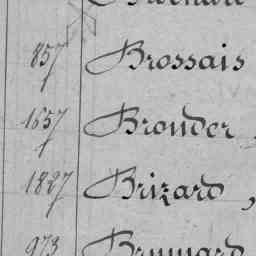 857 Brossais
1657 Bronder,
1827 Brizard,
973